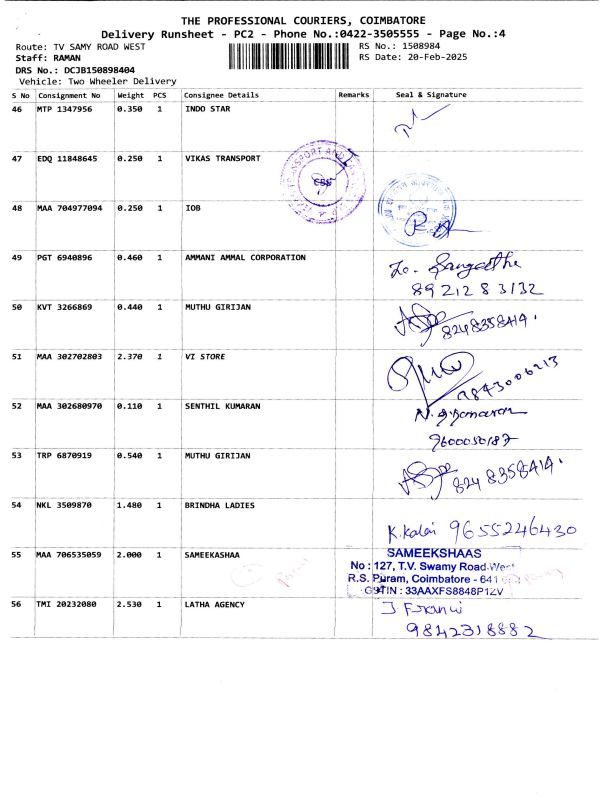 THE PROFESSIONAL COURIERS, COIMBATORE
Delivery Runsheet - PC2 - Phone No.:0422-3505555 - Page No.:4
Route: TV SAMY ROAD WEST RS No.: 1508984
Staff: RAMAN RS Date: 20-Feb-2025
DRS No.: DCJB150898404
Vehicle: Two Wheeler Delivery
S No Consignment No Weight PCS Consignee Details Remarks Seal & Signature
46 MTP 1347956 0.350 1 INDO STAR
47 EDQ 11848645 0.250 1 VIKAS TRANSPORT
48 MAA 704977094 0.250 1 IOB
49 PGT 6940896 0.460 1 AMMANI AMMAL CORPORATION
8921283132
50 KVT 3266869 0.440 1 MUTHU GIRIJAN
8248358414.
51 MAA 302702803 2.370 1 VI STORE
9843006213
52 MAA 302680970 0.110 1 SENTHIL KUMARAN
9600050187
53 TRP 6870919 0.540 1 MUTHU GIRIJAN
8248358414.
54 NKL 3509870 1.480 1 BRINDHA LADIES
K.Kalai 9655246430
55 MAA 706535059 2.000 1 SAMEEKSHAA
SAMEEKSHAAS
No : 127, T.V. Swamy Road West
R.S. Puram, Coimbatore - 641
GSTIN : 33AAXFS8848P1ZV
56 TMI 20232080 2.530 1 LATHA AGENCY
9842318882